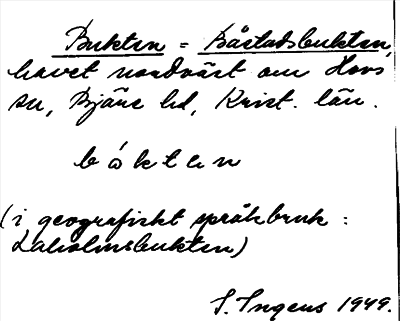 Bukten = Båstadsbukten,
havet nordväst om Hovs
sn, Bjäre hd, Krist. län.
bókten
(i geografiskt språkbruk:
Laholmsbukten)
S. Ingers 1949.